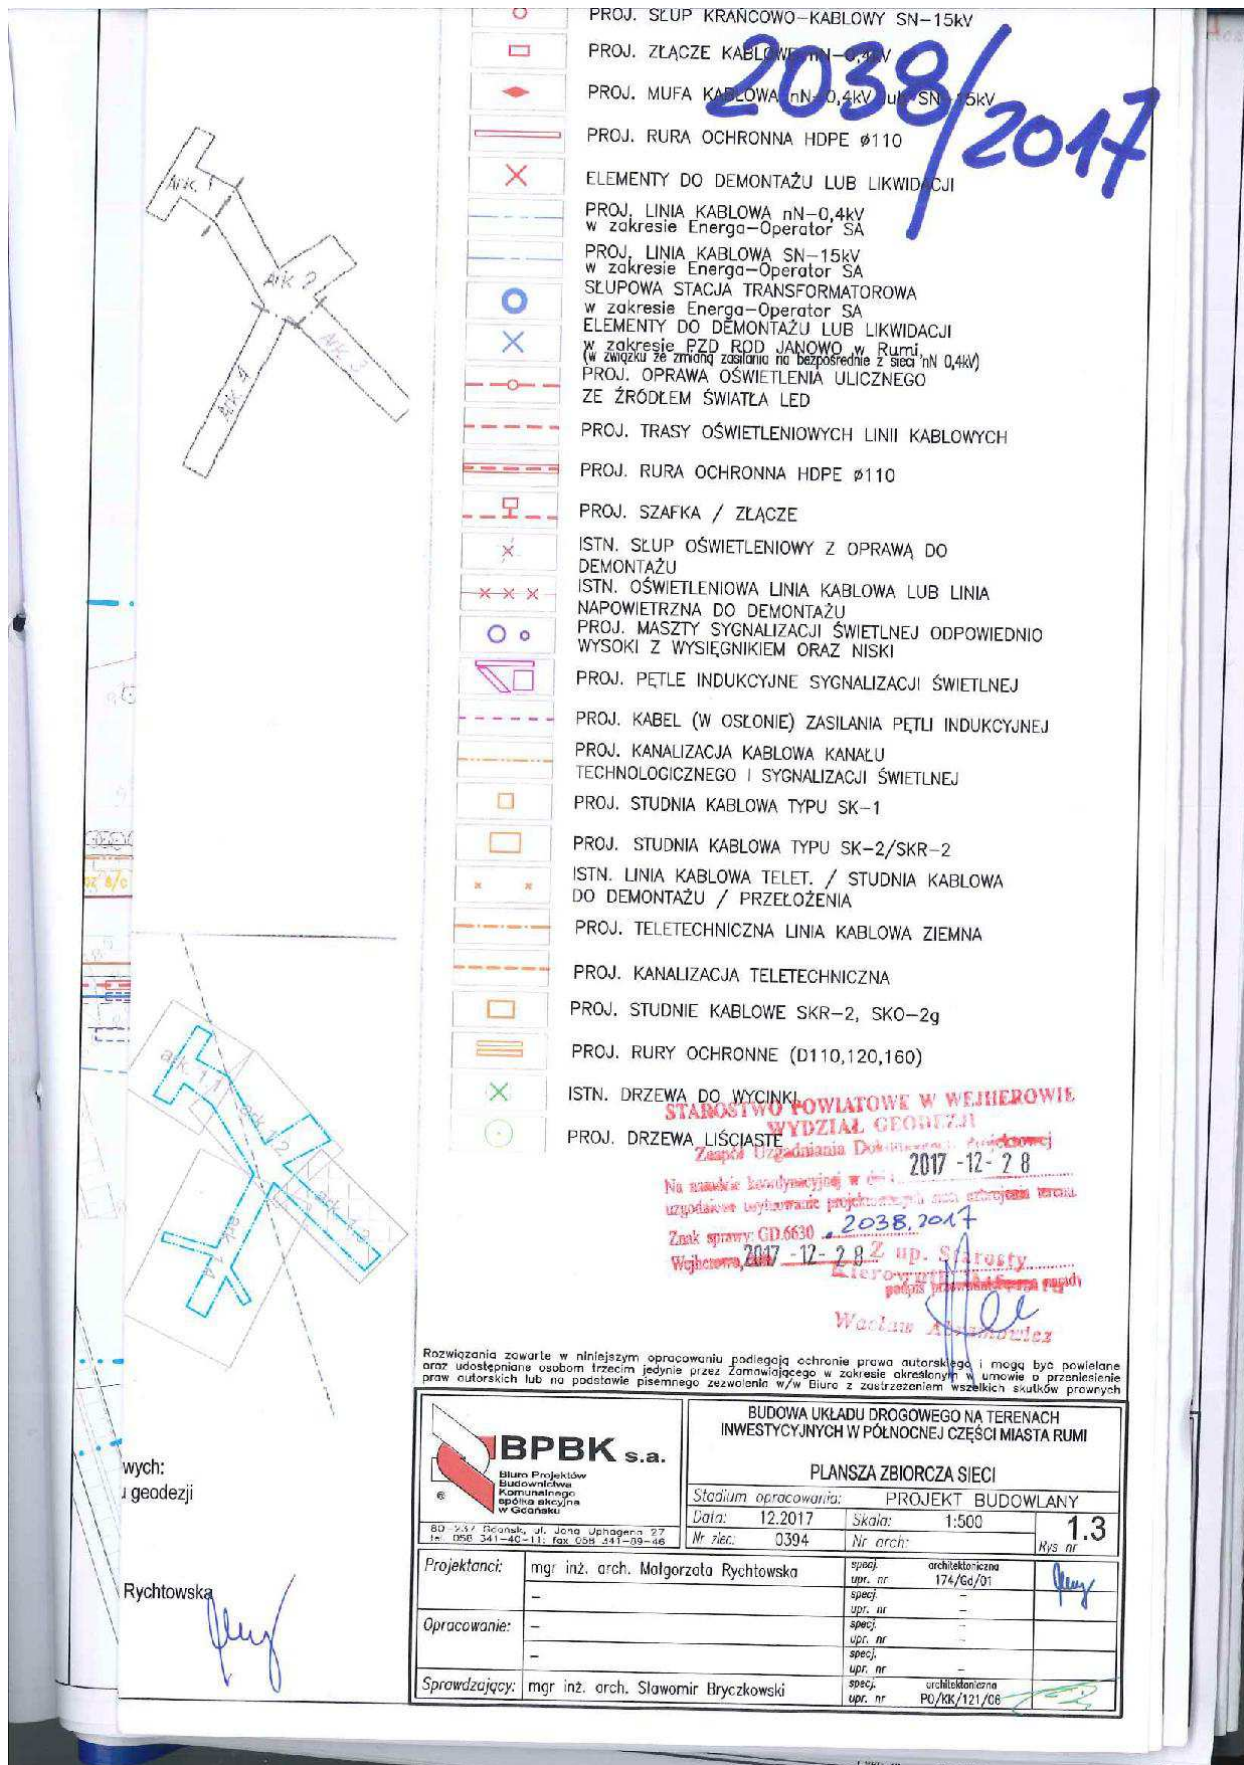 PROJ. SŁUP KRAŃCOWO-KABLOWY SN-15kV
PROJ. ZŁĄCZE KABLOWE nN-0,4kV
2038/2017
PROJ. MUFA KABLOWA nN-0,4kV lub SN-15kV
PROJ. RURA OCHRONNA HDPE ø110
ELEMENTY DO DEMONTAŻU LUB LIKWIDACJI
PROJ. LINIA KABLOWA nN-0,4kV
w zakresie Energa-Operator SA
PROJ. LINIA KABLOWA SN-15kV
w zakresie Energa-Operator SA
SŁUPOWA STACJA TRANSFORMATOROWA
w zakresie Energa-Operator SA
ELEMENTY DO DEMONTAŻU LUB LIKWIDACJI
w zakresie PZD ROD JANOWO w Rumi
(w związku ze zmianą zasilania na bezpośrednie z sieci nN 0,4kV)
PROJ. OPRAWA OŚWIETLENIA ULICZNEGO
ZE ŹRÓDŁEM ŚWIATŁA LED
PROJ. TRASY OŚWIETLENIOWYCH LINII KABLOWYCH
PROJ. RURA OCHRONNA HDPE ø110
PROJ. SZAFKA / ZŁĄCZE
ISTN. SŁUP OŚWIETLENIOWY Z OPRAWĄ DO
DEMONTAŻU
ISTN. OŚWIETLENIOWA LINIA KABLOWA LUB LINIA
NAPOWIETRZNA DO DEMONTAŻU
PROJ. MASZTY SYGNALIZACJI ŚWIETLNEJ ODPOWIEDNIO
WYSOKI Z WYSIĘGNIKIEM ORAZ NISKI
PROJ. PĘTLE INDUKCYJNE SYGNALIZACJI ŚWIETLNEJ
PROJ. KABEL (W OSŁONIE) ZASILANIA PĘTLI INDUKCYJNEJ
PROJ. KANALIZACJA KABLOWA KANAŁU
TECHNOLOGICZNEGO I SYGNALIZACJI ŚWIETLNEJ
PROJ. STUDNIA KABLOWA TYPU SK-1
PROJ. STUDNIA KABLOWA TYPU SK-2/SKR-2
ISTN. LINIA KABLOWA TELET. / STUDNIA KABLOWA
DO DEMONTAŻU / PRZEŁOŻENIA
PROJ. TELETECHNICZNA LINIA KABLOWA ZIEMNA
PROJ. KANALIZACJA TELETECHNICZNA
PROJ. STUDNIE KABLOWE SKR-2, SKO-2g
PROJ. RURY OCHRONNE (D110,120,160)
ISTN. DRZEWA DO WYCINKI
PROJ. DRZEWA LIŚCIASTE
Ark. 1
Ark 2
Ark. 3
Ark. 4
ark. 1.1
ark 1.2
ark. 1.3
ark. 1.4
STAROSTWO POWIATOWE W WEJHEROWIE
WYDZIAŁ GEODEZJI
Zespół Uzgadniania Dokumentacji Projektowej
Na naradzie koordynacyjnej w dniu 2017-12-28
uzgodniono usytuowanie projektowanych sieci uzbrojenia terenu
Znak sprawy: GD.6630 . 2038.2017
Wejherowo, 2017-12-28 Z up. Starosty
Wacław
Rozwiązania zawarte w niniejszym opracowaniu podlegają ochronie prawa autorskiego i mogą być powielane
oraz udostępniane osobom trzecim jedynie przez Zamawiającego w zakresie określonym w umowie o przeniesienie
praw autorskich lub na podstawie pisemnego zezwolenia w/w Biura z zastrzeżeniem wszelkich skutków prawnych
wych:
u geodezji
Rychtowska
BPBK s.a.
Biuro Projektów
Budownictwa
Komunalnego
spółka akcyjna
w Gdańsku
80-237 Gdańsk, ul. Jana Uphagena 27
tel. 058 341-40-11; fax 058 341-89-46
BUDOWA UKŁADU DROGOWEGO NA TERENACH
INWESTYCYJNYCH W PÓŁNOCNEJ CZĘŚCI MIASTA RUMI
PLANSZA ZBIORCZA SIECI
Stadium opracowania: PROJEKT BUDOWLANY
Data: 12.2017 Skala: 1:500
Nr zlec: 0394 Nr arch: Rys nr 1.3
Projektanci: mgr inż. arch. Małgorzata Rychtowska specj. architektoniczna
upr. nr 174/Gd/01
– specj. –
upr. nr –
Opracowanie: – specj. –
upr. nr –
– specj.
upr. nr –
Sprawdzający: mgr inż. arch. Sławomir Bryczkowski specj. architektoniczna
upr. nr PO/KK/121/06